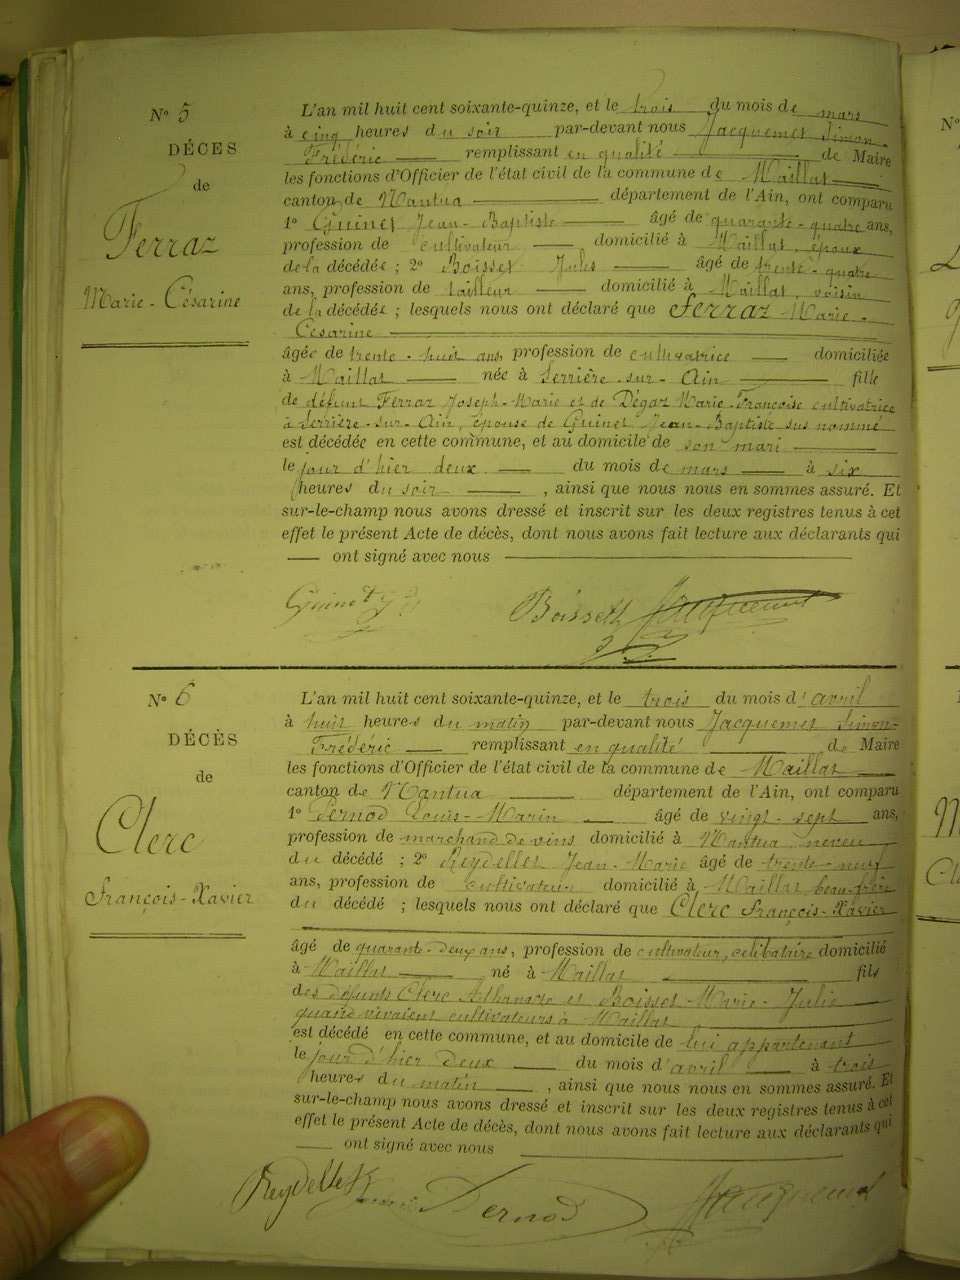 N° 5
DÉCÈS
de
Ferraz
Marie-Césarine
L'an mil huit cent soixante-quinze, et le trois du mois de mars
à cinq heures du soir par-devant nous Jacquemet Simon-
Frédéric remplissant en qualité de Maire
les fonctions d'Officier de l'état civil de la commune de Maillat
canton de Nantua département de l'Ain, ont comparu
1° Guinet Jean-Baptiste âgé de quarante-quatre ans,
profession de cultivateur domicilié à Maillat, époux
de la décédée ; 2° Boisset Jules âgé de trente-quatre
ans, profession de tailleur domicilié à Maillat, voisin
de la décédée ; lesquels nous ont déclaré que Ferraz Marie-
Césarine
âgée de trente-huit ans, profession de cultivatrice domiciliée
à Maillat née à Serrière-sur-Ain fille
de défunt Ferraz Joseph-Marie et de Dégaz Marie-Françoise cultivatrice
à Serrière-sur-Ain, épouse de Guinet Jean-Baptiste sus nommé
est décédée en cette commune, et au domicile de son mari
le jour d'hier deux du mois de mars à six
heures du soir , ainsi que nous nous en sommes assuré. Et
sur-le-champ nous avons dressé et inscrit sur les deux registres tenus à cet
effet le présent Acte de décès, dont nous avons fait lecture aux déclarants qui
ont signé avec nous
Guinet Boisseth Jacquemet
N° 6
DÉCÈS
de
Clerc
François-Xavier
L'an mil huit cent soixante-quinze, et le trois du mois d'avril
à huit heures du matin par-devant nous Jacquemet Simon-
Frédéric remplissant en qualité de Maire
les fonctions d'Officier de l'état civil de la commune de Maillat
canton de Nantua département de l'Ain, ont comparu
1° Pernod Louis-Marin âgé de vingt-sept ans,
profession de marchand de vins domicilié à Nantua neveu
du décédé ; 2° Reydellet Jean-Marie âgé de trente-neuf
ans, profession de cultivateur domicilié à Maillat, beau-frère
du décédé ; lesquels nous ont déclaré que Clerc François-Xavier
âgé de quarante-deux ans, profession de cultivateur, célibataire domicilié
à Maillat né à Maillat fils
des défunts Clerc Athanase et Boisset Marie-Julie
quand vivaient cultivateurs à Maillat
est décédé en cette commune, et au domicile de lui appartenant
le jour d'hier deux du mois d'avril à trois
heures du matin , ainsi que nous nous en sommes assuré. Et
sur-le-champ nous avons dressé et inscrit sur les deux registres tenus à cet
effet le présent Acte de décès, dont nous avons fait lecture aux déclarants qui
ont signé avec nous
Reydellet Pernod Jacquemet